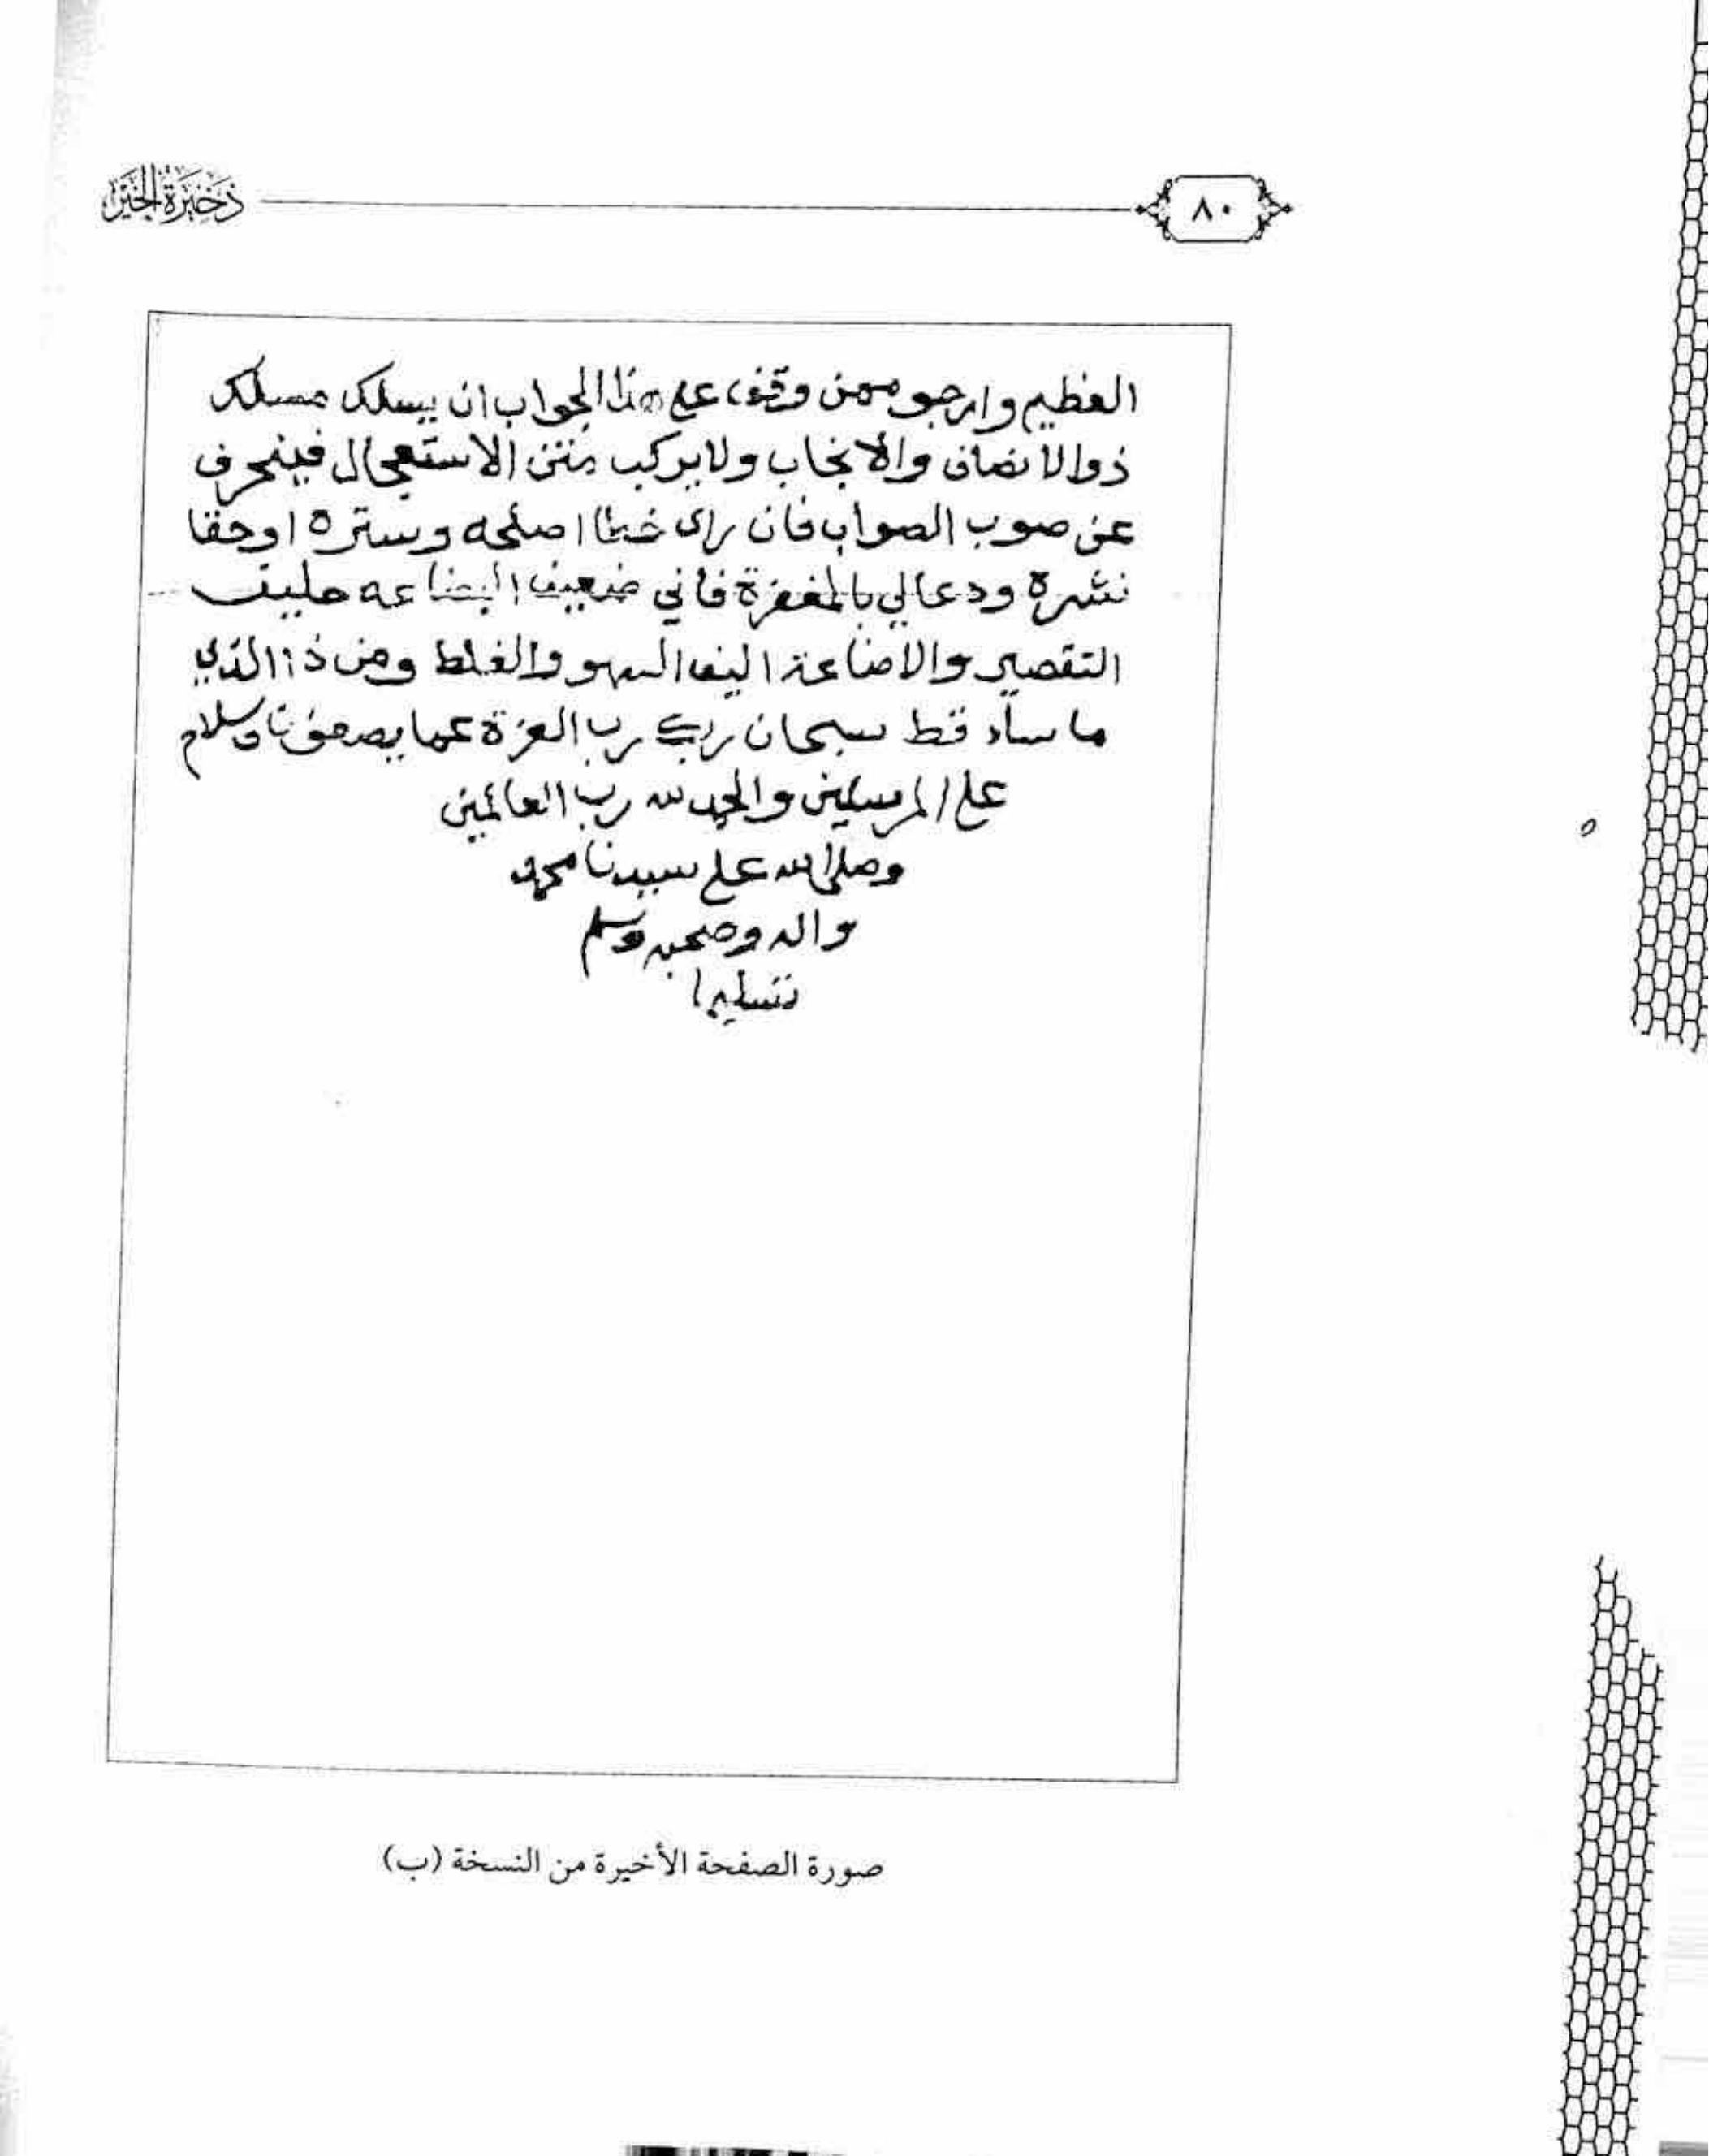 ذخيرة الخير
٨٠
العظيم وارجو ممن وقف على هذا الجواب ان يسلك مسلك
ذوا الانصاف والانجاب ولا يركب متن الاستعجال فينحرف
عن صوب الصواب فان راى خطا اصلحه وستره او حقا
نشره ودعا لي بالمغفرة فاني ضعيف البضاعه حليف
التقصير والاضاعة اليف السهو والغلط ومن ذا الذي
ما ساء قط سبحان ربك رب العزة عما يصفون وسلام
على المرسلين والحمد لله رب العالمين
وصلى الله على سيدنا محمد
واله وصحبه وسلم
تسليما
صورة الصفحة الأخيرة من النسخة (ب)